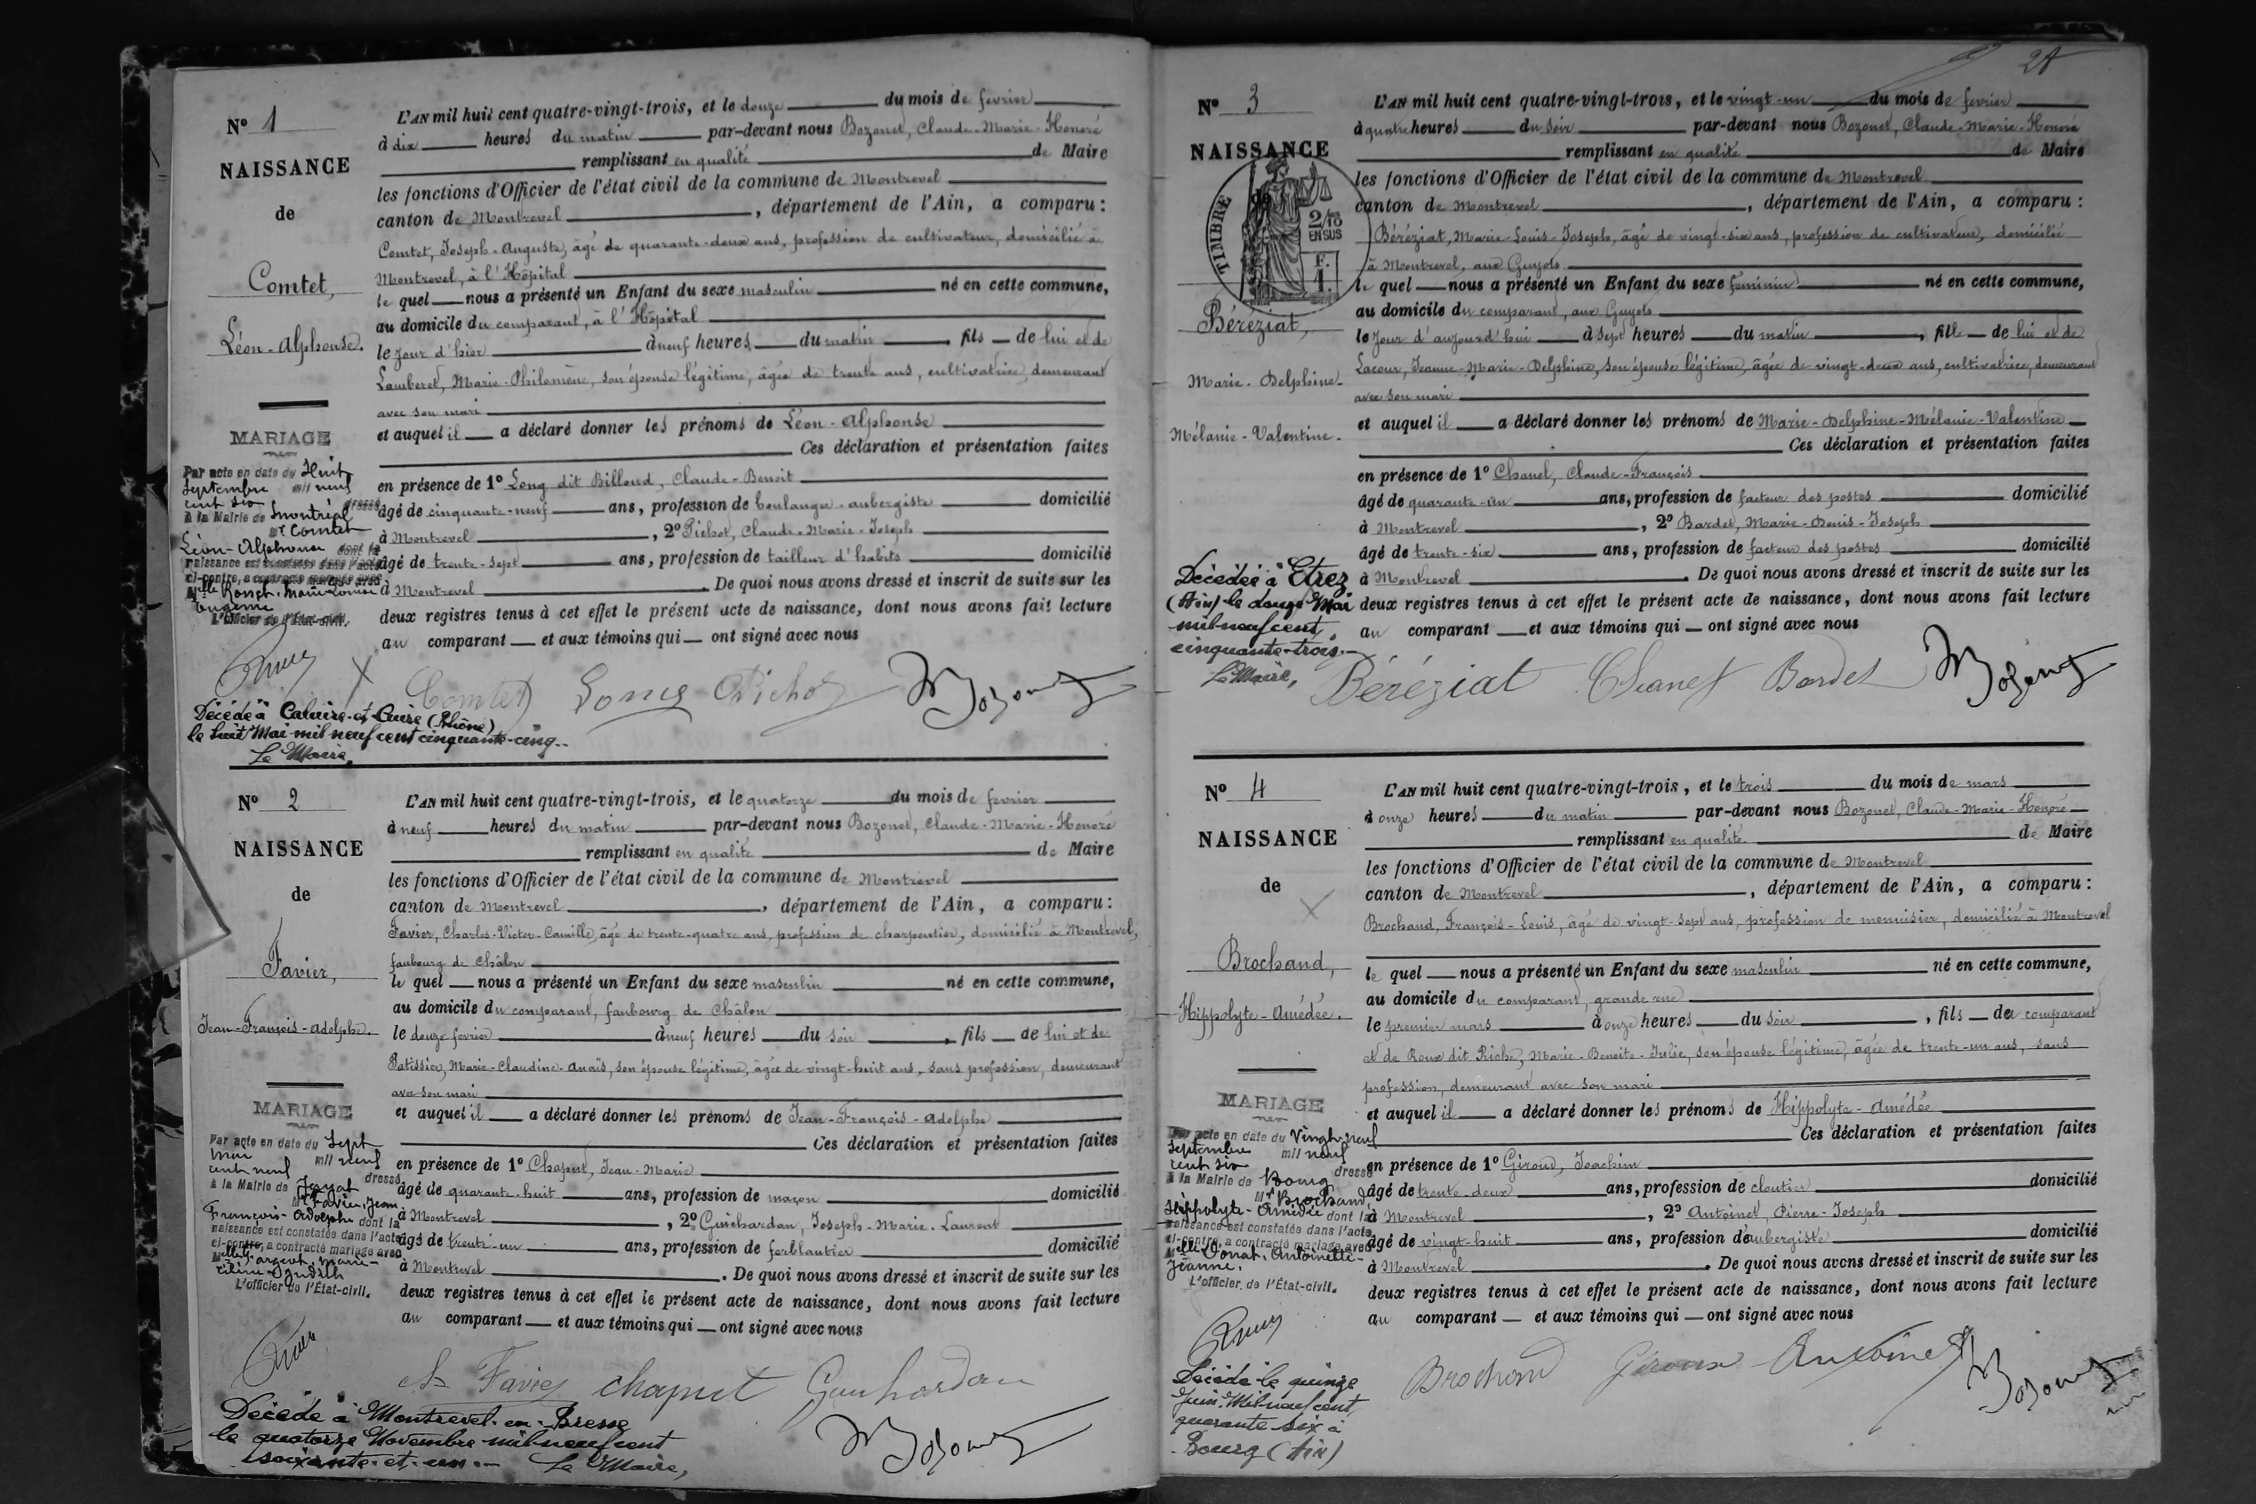 N° 1
NAISSANCE
de
Comtet,
Léon-Alphonse.
L'AN mil huit cent quatre-vingt-trois, et le douze du mois de fevrier
à dix heures du matin par-devant nous Bozonet, Claude-Marie-Honoré
remplissant en qualité de Maire
les fonctions d'Officier de l'état civil de la commune de Montrevel
canton de Montrevel, département de l'Ain, a comparu:
Comtet, Joseph-Auguste, âgé de quarante-deux ans, profession de cultivateur, domicilié à
Montrevel, à l'Hôpital
le quel nous a présenté un Enfant du sexe masculin né en cette commune,
au domicile du comparant, à l'Hôpital
le jour d'hier à neuf heures du matin, fils de lui et de
Lamberet, Marie-Philomène, son épouse légitime, âgée de trente ans, cultivatrice, demeurant
avec son mari
et auquel il a déclaré donner les prénoms de Léon-Alphonse
Ces déclaration et présentation faites
en présence de 1° Long dit Billoud, Claude-Benoit
âgé de cinquante-neuf ans, profession de boulanger-aubergiste domicilié
à Montrevel, 2° Pichot, Claude-Marie-Joseph
âgé de trente-sept ans, profession de tailleur d'habits domicilié
à Montrevel. De quoi nous avons dressé et inscrit de suite sur les
deux registres tenus à cet effet le présent acte de naissance, dont nous avons fait lecture
au comparant et aux témoins qui ont signé avec nous
Comtet Long Pichot Bozonet
MARIAGE
Par acte en date du Huit
Septembre mil neuf
cent six dressé
à la Mairie de Montréal
Mr Comtet
Léon-Alphonse dont la
naissance est constatée dans l'acte
ci-contre, a contracté mariage avec
Melle Ronch, Marie-Louise
Eugénie
L'officier de l'État-civil,
Décédé à Caluire-et-Cuire (Rhône)
le huit Mai mil neuf cent cinquante-cinq.
Le Maire,
N° 2
NAISSANCE
de
Favier,
Jean-François-Adolphe.
L'AN mil huit cent quatre-vingt-trois, et le quatorze du mois de fevrier
à neuf heures du matin par-devant nous Bozonet, Claude-Marie-Honoré
remplissant en qualité de Maire
les fonctions d'Officier de l'état civil de la commune de Montrevel
canton de Montrevel, département de l'Ain, a comparu:
Favier, Charles-Victor-Camille, âgé de trente-quatre ans, profession de charpentier, domicilié à Montrevel,
faubourg de Châlon
le quel nous a présenté un Enfant du sexe masculin né en cette commune,
au domicile du comparant, faubourg de Châlon
le douze fevrier à neuf heures du soir, fils de lui et de
Patissier, Marie-Claudine-Anaïs, son épouse légitime, âgée de vingt-huit ans, sans profession, demeurant
avec son mari
et auquel il a déclaré donner les prénoms de Jean-François-Adolphe
Ces déclaration et présentation faites
en présence de 1° Chapuet, Jean-Marie
âgé de quarante-huit ans, profession de maçon domicilié
à Montrevel, 2° Guichardan, Joseph-Marie-Laurent
âgé de trente-un ans, profession de ferblantier domicilié
à Montrevel. De quoi nous avons dressé et inscrit de suite sur les
deux registres tenus à cet effet le présent acte de naissance, dont nous avons fait lecture
au comparant et aux témoins qui ont signé avec nous
Favier chapuet Guichardan
Bozonet
MARIAGE
Par acte en date du Sept
Mai mil neuf
cent neuf dressé
à la Mairie de Jayat
Mr Favier, Jean
François-Adolphe dont la
naissance est constatée dans l'acte
ci-contre, a contracté mariage avec
L'officier de l'État-civil.
Décédé à Montrevel-en-Bresse
le quatorze Novembre mil neuf cent
soixante-et-un. Le Maire,
28
N° 3
NAISSANCE
de
TIMBRE
2/10
EN SUS
F.
1.
Béréziat,
Marie-Delphine-
Mélanie-Valentine.
L'AN mil huit cent quatre-vingt-trois, et le vingt-un du mois de fevrier
à quatre heures du soir par-devant nous Bozonet, Claude-Marie-Honoré
remplissant en qualité de Maire
les fonctions d'Officier de l'état civil de la commune de Montrevel
canton de Montrevel, département de l'Ain, a comparu:
Béréziat, Marie-Louis-Joseph, âgé de vingt-six ans, profession de cultivateur, domicilié
à Montrevel, aux Guyots
le quel nous a présenté un Enfant du sexe feminin né en cette commune,
au domicile du comparant, aux Guyots
le jour d'aujourd'hui à sept heures du matin, fille de lui et de
Lacour, Jeanne-Marie-Delphine, son épouse légitime, âgée de vingt-deux ans, cultivatrice, demeurant
avec son mari
et auquel il a déclaré donner les prénoms de Marie-Delphine-Mélanie-Valentine
Ces déclaration et présentation faites
en présence de 1° Chanel, Claude-François
âgé de quarante-un ans, profession de facteur des postes domicilié
à Montrevel, 2° Bardet, Marie-Denis-Joseph
âgé de trente-six ans, profession de facteur des postes domicilié
à Montrevel. De quoi nous avons dressé et inscrit de suite sur les
deux registres tenus à cet effet le présent acte de naissance, dont nous avons fait lecture
au comparant et aux témoins qui ont signé avec nous
Béréziat Chanel Bardet Bozonet
Décédée à Etrez
(Ain) le douze Mai
mil neuf cent
cinquante-trois.
Le Maire,
N° 4
NAISSANCE
de
Brochand,
Hippolyte-Amédée.
L'AN mil huit cent quatre-vingt-trois, et le trois du mois de mars
à onze heures du matin par-devant nous Bozonet, Claude-Marie-Honoré
remplissant en qualité de Maire
les fonctions d'Officier de l'état civil de la commune de Montrevel
canton de Montrevel, département de l'Ain, a comparu:
Brochand, François-Louis, âgé de vingt-sept ans, profession de menuisier, domicilié à Montrevel
le quel nous a présenté un Enfant du sexe masculin né en cette commune,
au domicile du comparant, grande rue
le premier mars à onze heures du soir, fils du comparant
et de Roux dit Riche, Marie-Benoite-Julie, son épouse légitime, âgée de trente-un ans, sans
profession, demeurant avec son mari
et auquel il a déclaré donner les prénoms de Hippolyte-Amédée
Ces déclaration et présentation faites
en présence de 1° Giroud, Joachim
âgé de trente-deux ans, profession de cloutier domicilié
à Montrevel, 2° Antoinet, Pierre-Joseph
âgé de vingt-huit ans, profession d'aubergiste domicilié
à Montrevel. De quoi nous avons dressé et inscrit de suite sur les
deux registres tenus à cet effet le présent acte de naissance, dont nous avons fait lecture
au comparant et aux témoins qui ont signé avec nous
Brochand Giroux Antoinet Bozonet
MARIAGE
Par acte en date du Vingt-neuf
Septembre mil neuf
cent six dressé
à la Mairie de Bourg
Mr Brochand,
Hippolyte-Amédée dont la
naissance est constatée dans l'acte
ci-contre, a contracté mariage avec
Melle Donat, Antoinette-
Jeanne.
L'officier de l'État-civil.
Décédé le quinze
Juin Mil neuf cent
quarante six à
Bourg (Ain)